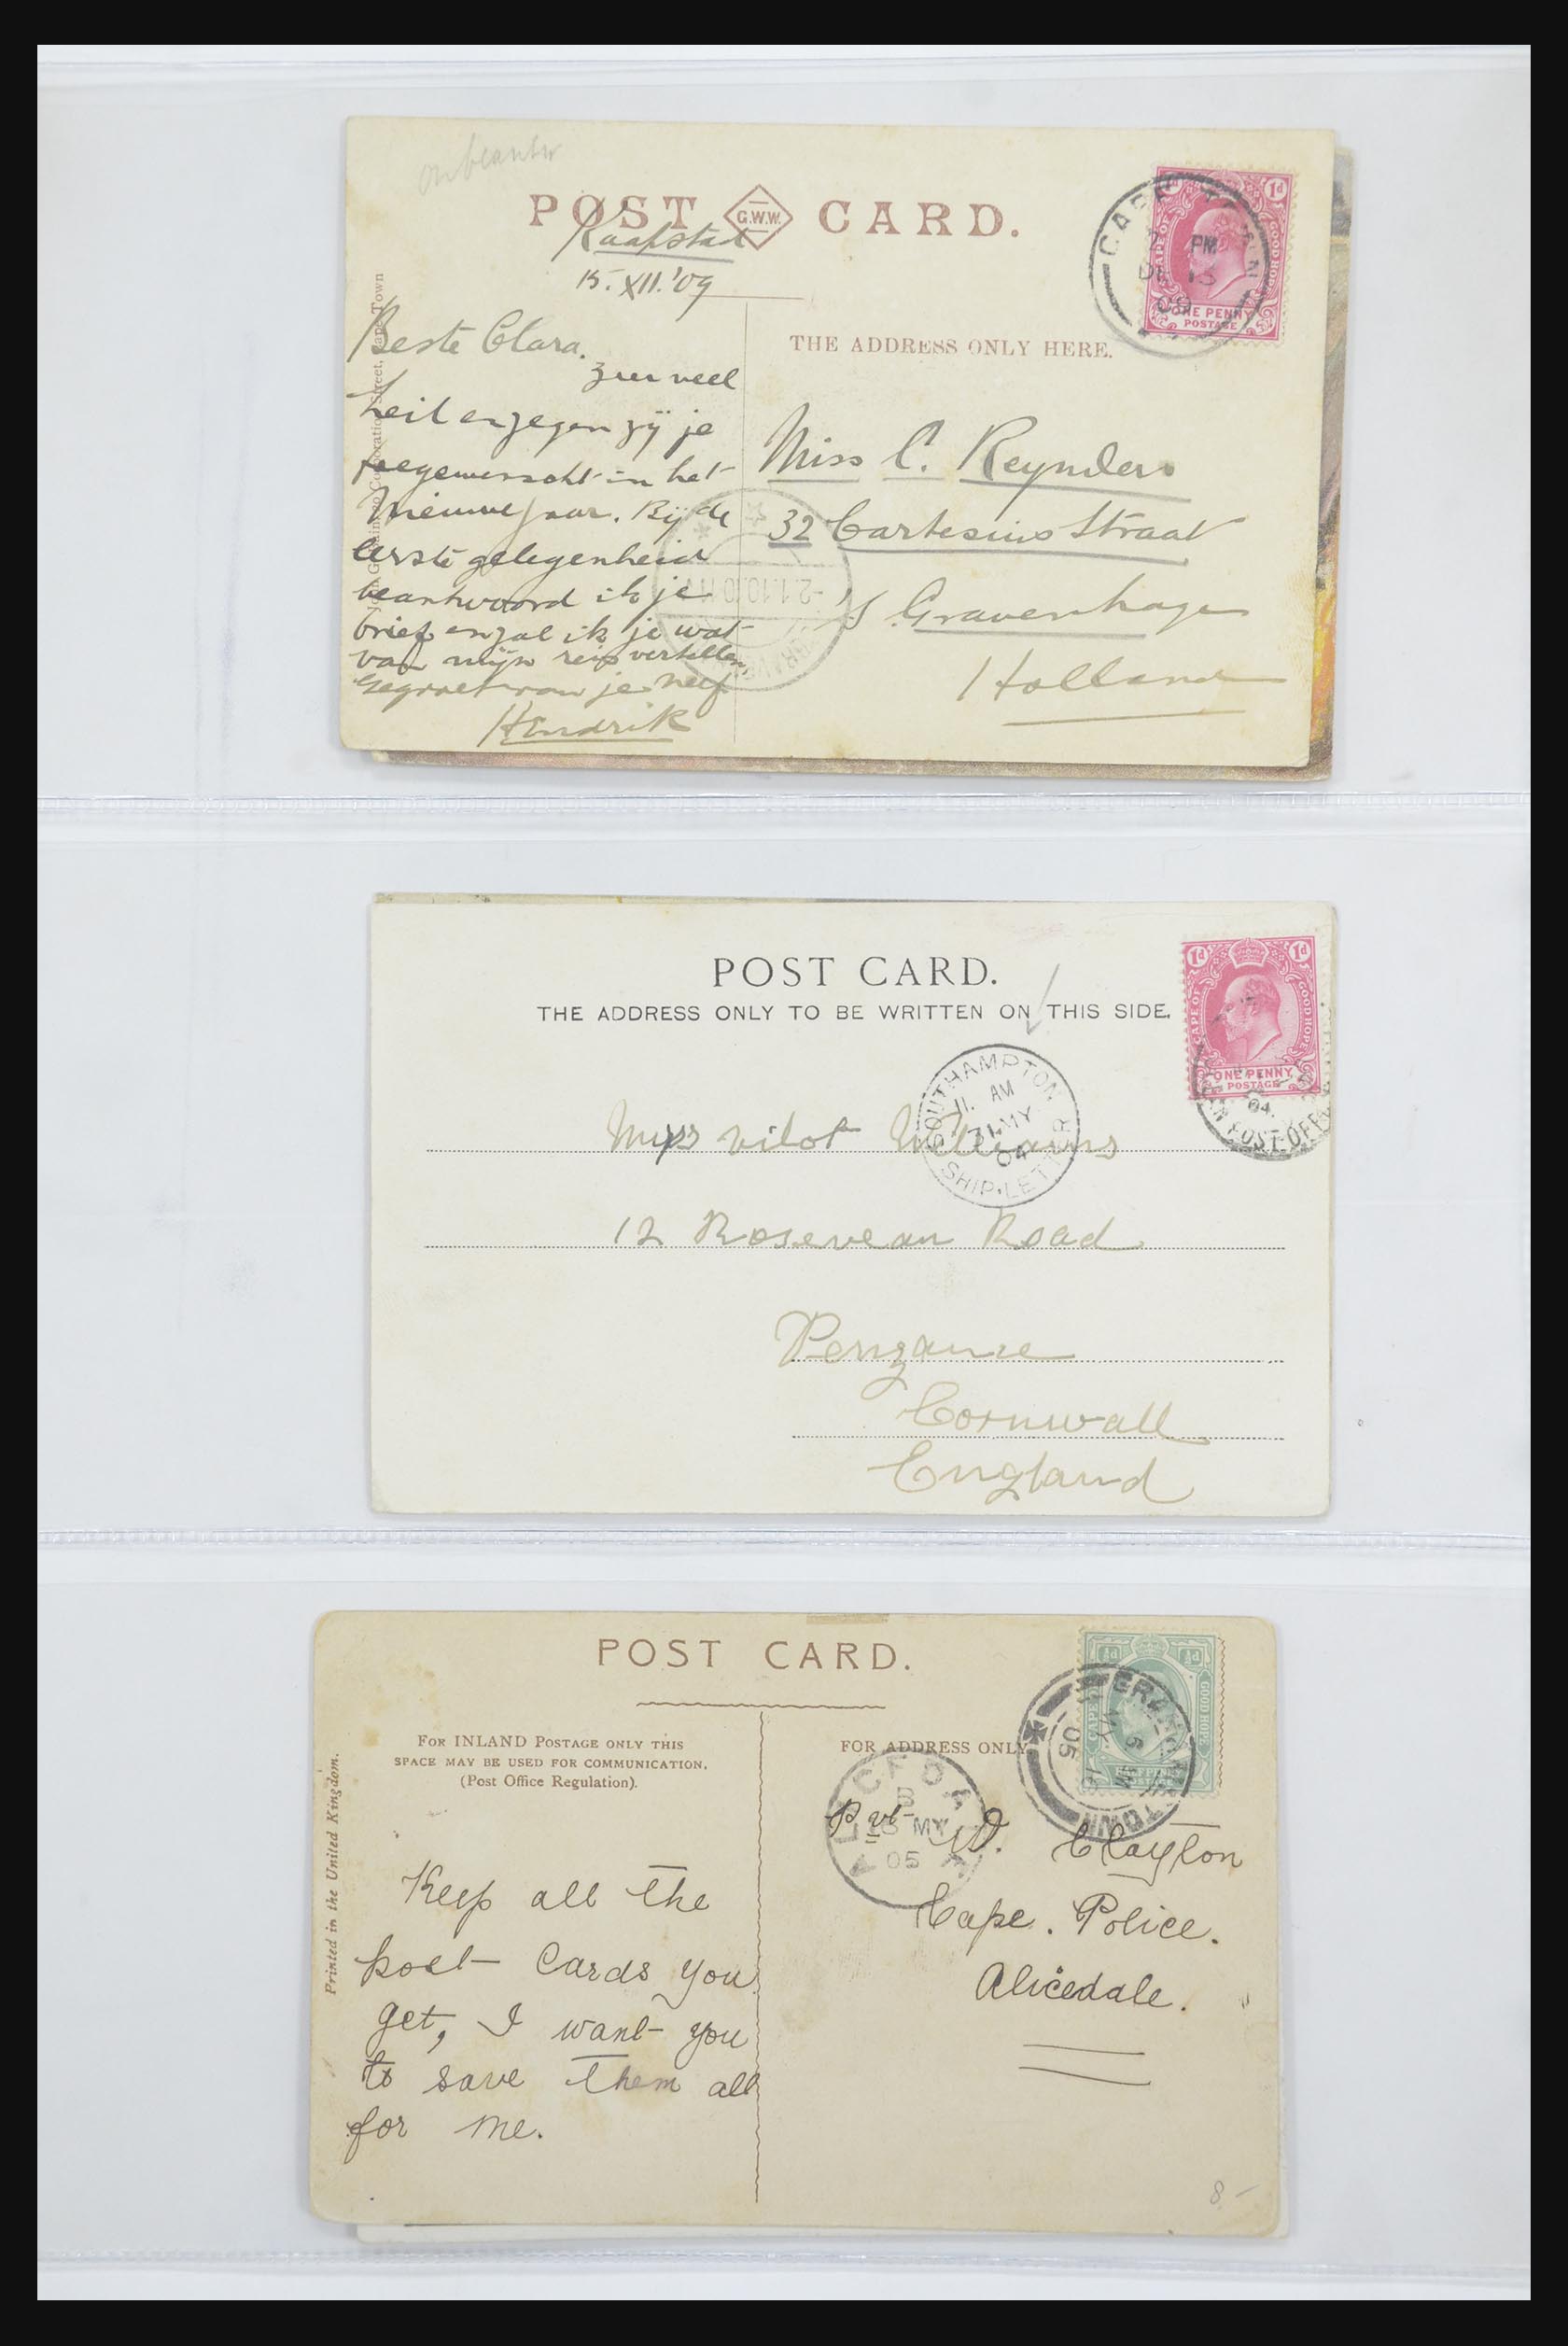 onbeantw
POST G.W.W. CARD.
Kaapstad
15. XII. '09
THE ADDRESS ONLY HERE.
CAPE TOWN
PM
DE 15
09
CAPE OF GOOD HOPE
1d
ONE PENNY
POSTAGE
Beste Clara,
zeer veel
heil en zegen zij je
toegewenscht in het
Nieuwejaar. Bij de
eerste gelegenheid
beantwoord ik je
brief en zal ik je wat
van mijn reis vertellen,
Gegroet van je neef
Hendrik
Miss C. Reynders
32 Cartesius Straat
's Gravenhage
Holland
POST CARD.
THE ADDRESS ONLY TO BE WRITTEN ON THIS SIDE.
1d 1d
CAPE OF GOOD HOPE
ONE PENNY
POSTAGE
SOUTHAMPTON
11. AM
31 MY
04
SHIP-LETTER
Miss Vilot Williams
12 Rosevean Road
Penzance
Cornwall
England
POST CARD.
For INLAND Postage only this
space may be used for communication.
(Post Office Regulation).
FOR ADDRESS ONLY
Printed in the United Kingdom.
½d ½d
GOOD HOPE
HALF PENNY
POSTAGE
ALICEDALE
B
MY
05
Keep all the
post Cards you
get, I want you
to save them all
for me.
Pvt W. Clayton
Cape. Police.
Alicedale.
8-